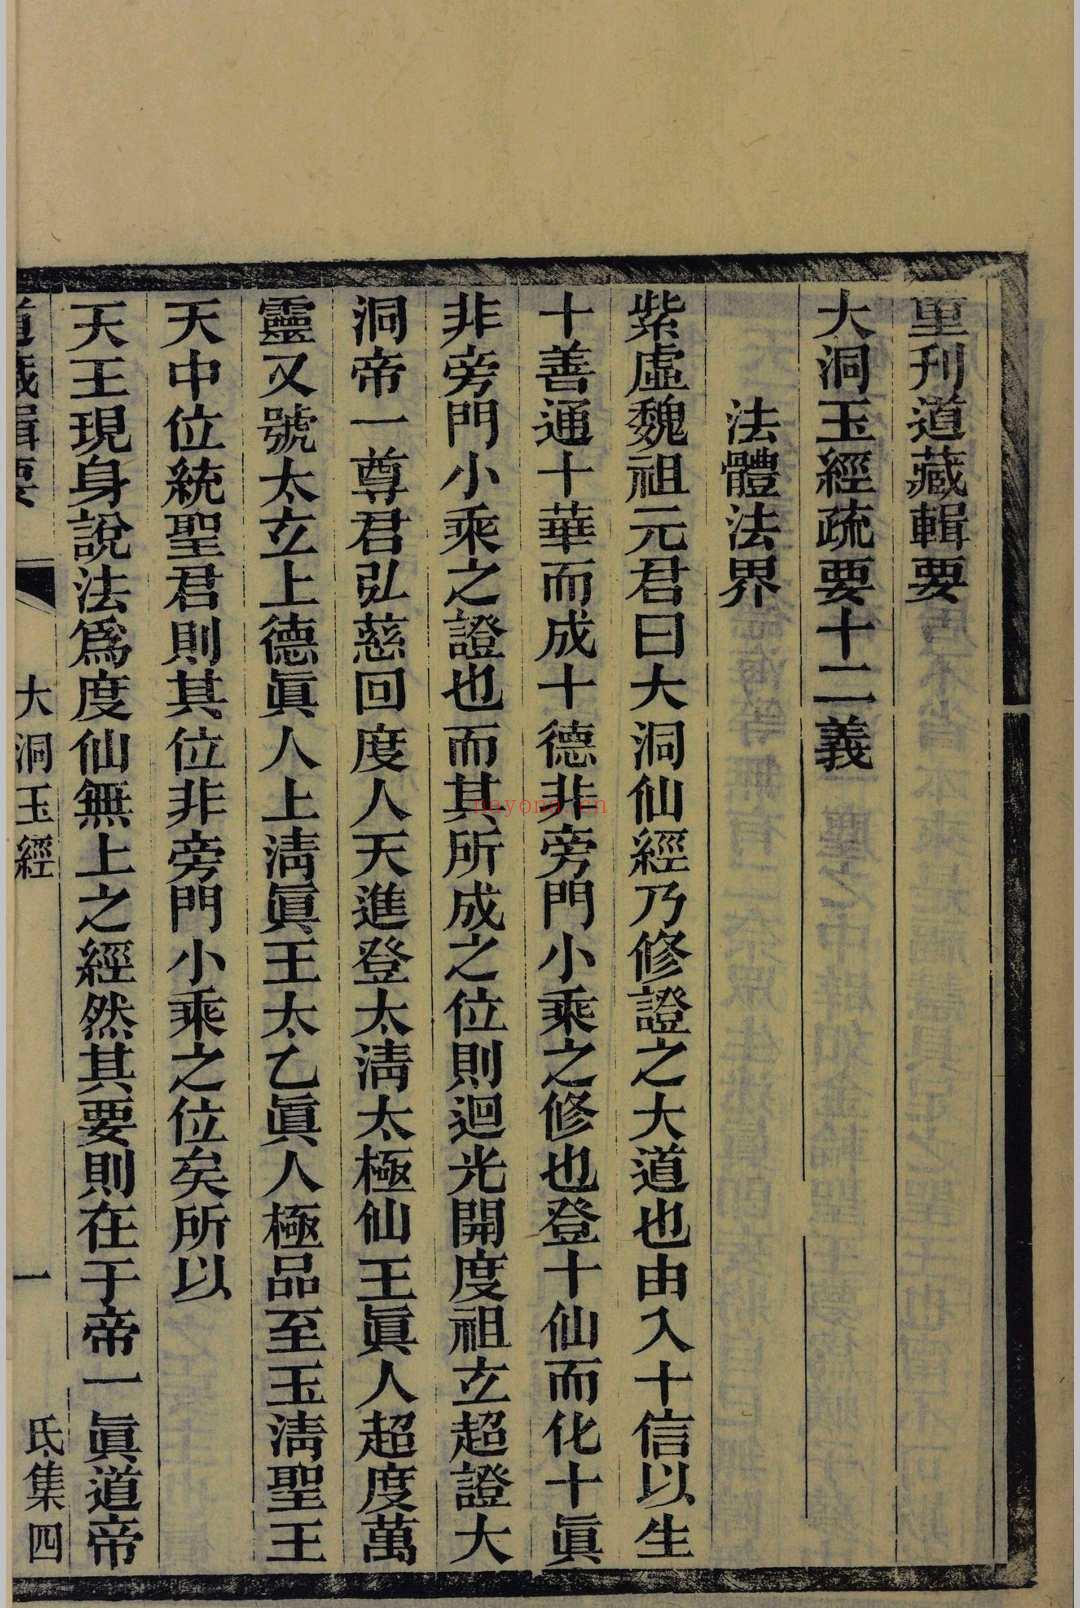 重刊道藏輯要
大洞玉經疏要十二義
法體法界
紫虛魏祖元君曰大洞仙經乃修證之大道也由入十信以生
十善通十華而成十德非旁門小乘之修也登十仙而化十眞
非旁門小乘之證也而其所成之位則迴光開度祖立超證大
洞帝一尊君弘慈回度人天進登太淸太極仙王眞人超度萬
靈又號太立上德眞人上淸眞王太乙眞人極品至玉淸聖王
天中位統聖君則其位非旁門小乘之位矣所以
天王現身說法爲度仙無上之經然其要則在于帝一眞道帝
道藏輯要 大洞玉經 一 氐集四
nayona.cn